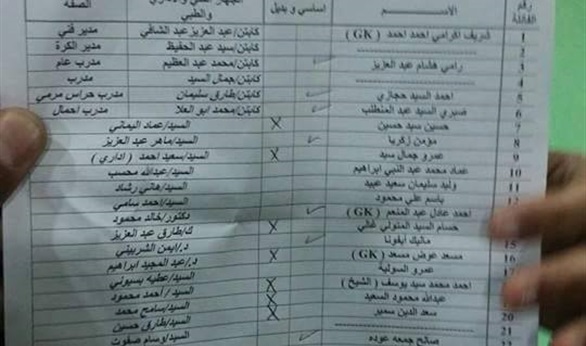 رقم الفانلة الاســـــم اساسي و بديل والطبي الصفه
1 شريف اكرامي احمد احمد ( GK ) كابتن/عبد العزيز عبد الشافي مدير فني
2 -------------------- كابتن/سيد عبد الحفيظ مدير الكرة
3 رامي هشام عبد العزيز كابتن/محمد عبد العظيم مدرب عام
4 -------------------- كابتن/جمال السيد مدرب
5 احمد السيد حجازي ✓ كابتن/طارق سليمان مدرب حراس مرمي
6 صبري السيد عبد المنطلب ✓ كابتن/محمد ابو العلا مدرب احمال
7 حسين سيد حسين X السيد/عماد اليماني
8 مؤمن زكريا ✓ السيد/ماهر عبد العزيز
9 عمرو جمال سيد X السيد/سعيد احمد ( اداري )
10 عماد محمد عبد النبي ابراهيم السيد/عبدالله محسب
11 وليد سليمان سعيد عبيد السيد/هاني رشاد
12 باسم علي محمود السيد/احمد سامي
احمد عادل عبد المنعم ( GK ) ✓ دكتور/خالد محمود
حسام السيد المتولي غالي X ك/طارق عبد العزيز
15 ماليك ايفونا ✓ د.ايمن الشربيني
16 مسعد عوض مسعد ( GK ) X د.عبد المجيد ابراهيم
17 عمرو السولية السيد/عطيه بسيوني
احمد محمد سيد يوسف ( الشيخ ) X السيد / احمد محمود
عبدالله محمود السعيد X السيد/سامح محمد
20 سعد الدين سمير X السيد/طارق حسين
21 --------------------
22 صالح جمعه عوده ✓ السيد/وسام صفوت